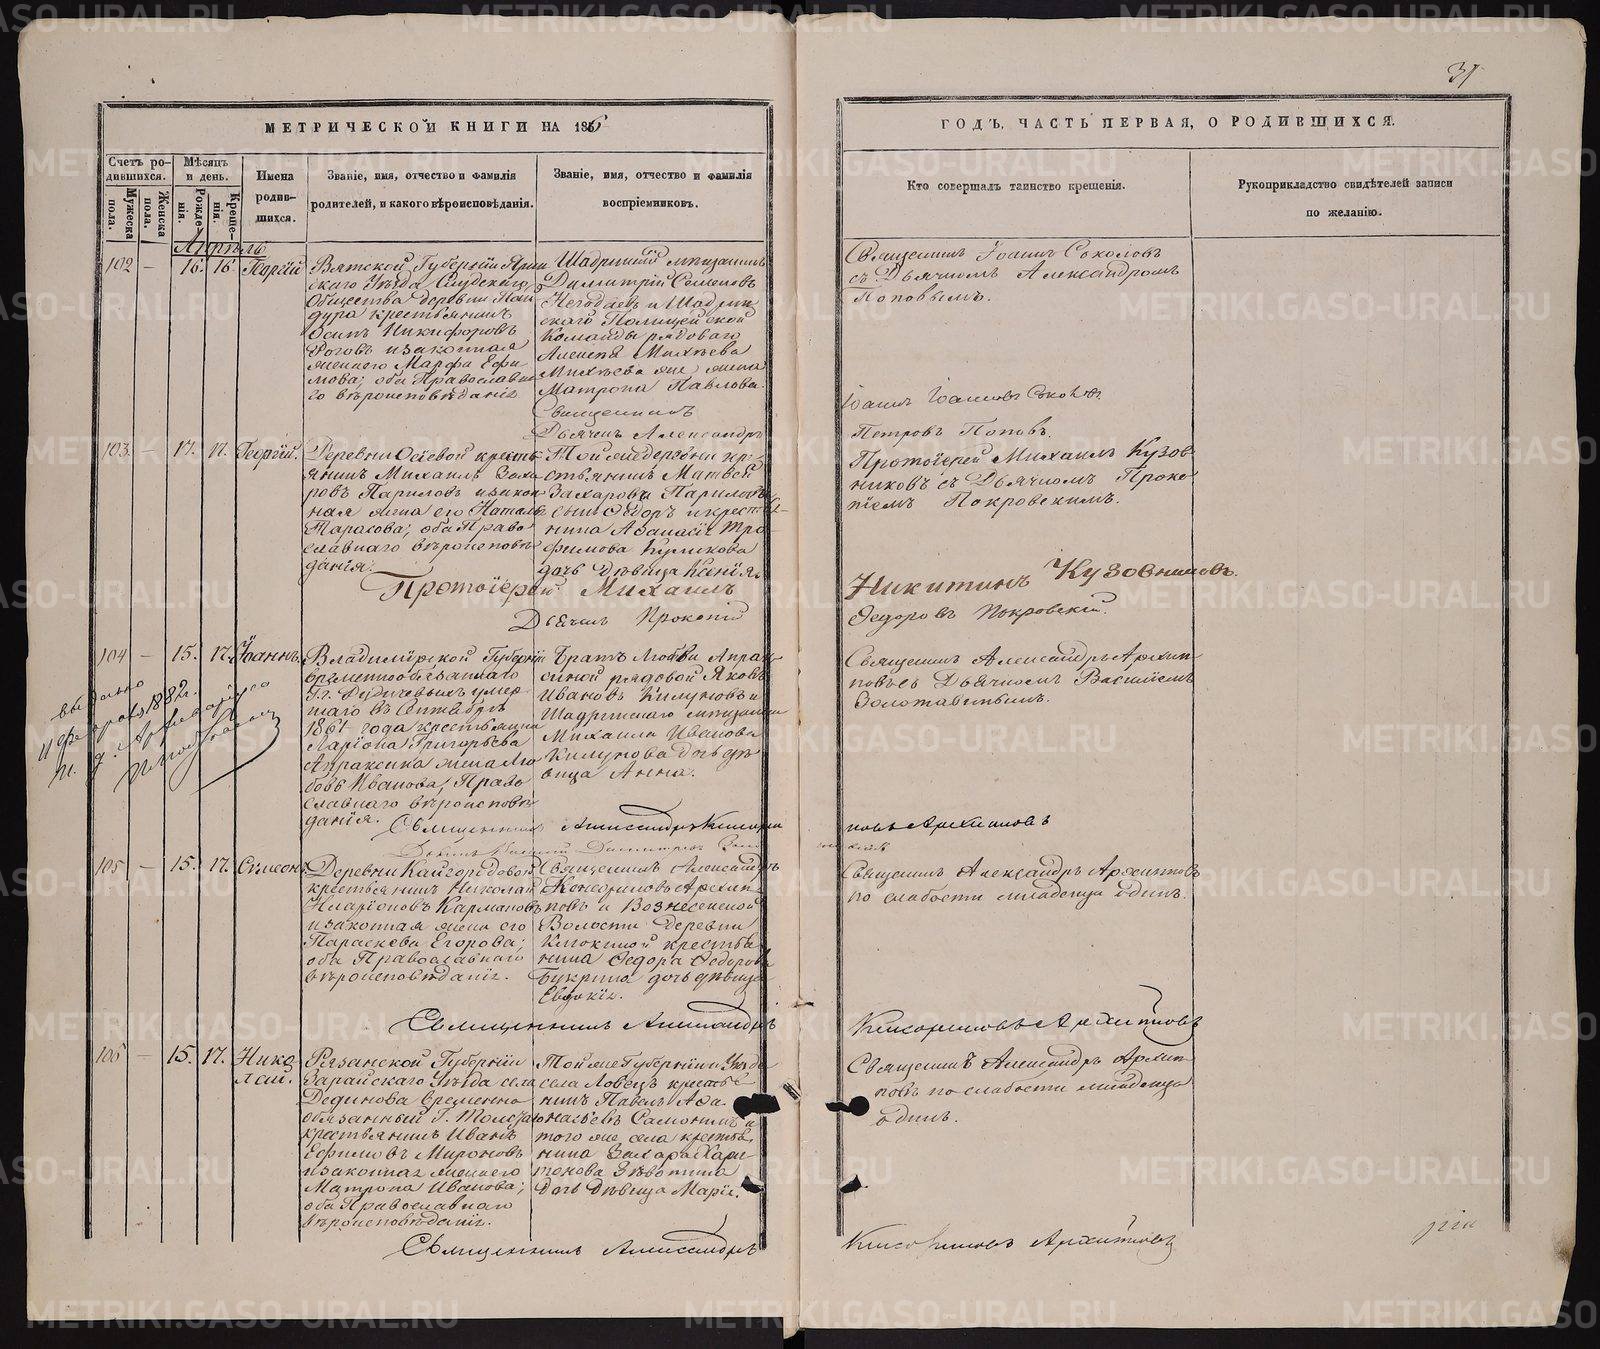 31
МЕТРИЧЕСКОЙ КНИГИ НА 186
ГОДЪ, ЧАСТЬ ПЕРВАЯ, О РОДИВШИХСЯ.
Счетъ ро-
дившихся.
Мужеска
пола.
Женска
пола.
Мѣсяцъ
и день.
Рожде-
нія.
Креще-
нія.
Имена
родив-
шихся.
Званіе, имя, отчество и фамилія
родителей, и какого вѣроисповѣданія.
Званіе, имя, отчество и фамилія
воспріемниковъ.
Кто совершалъ таинство крещенія.
Рукоприкладство свидѣтелей записи
по желанію.
Апрѣль
102
—
16.
16.
Георгій
Вятской Губерніи Яран
скаго Уѣзда
Общества деревни
дура крестьянинъ
Осипъ Никифоровъ
Роговъ и законная
жена его Марфа Ефи
мова; оба Православна
го вѣроисповѣданія
Шадринскій мѣщанинъ
Димитрій Семеновъ
Негодяевъ и Шадрин
скаго Полицейской
Команды рядоваго
Алексѣя Михѣева
Михѣева же жена
Матрона Павлова.
Священникъ Іоаннъ Соколовъ
съ Дьячкомъ Александромъ
Поповымъ.
Священникъ
Іоаннъ Іоанновъ Соколовъ
Дьячекъ Александръ
Петровъ Поповъ.
103
—
17.
17.
Георгій.
Деревни Осѣевой кресть
янинъ Михаилъ Заха
ровъ Париловъ и закон
ная жена его Наталья
Тарасова; оба Право
славнаго вѣроисповѣ
данія.
Той же деревни кре
стьянинъ Матвей
Захарова Парилова
сынъ Ѳедоръ и крестья-
нина Аѳанасія Тро
фимова Куликова
дочь дѣвица Ксенія.
Протоіерей Михаилъ Кузов
никовъ съ Дьячкомъ Проко
піемъ Покровскимъ.
Протоіерей Михаилъ
Никитинъ Кузовниковъ.
Дьячекъ Прокопій
Ѳедоровъ Покровскій.
104
—
15.
17.
Іоаннъ.
Владимірской Губерніи
временнообязаннаго
умер
шаго въ Сентябрѣ
1861 года крестьянина
Ларіона Григорьева
Апраксина жена Лю
бовь Иванова, Право
славнаго вѣроисповѣ
данія.
Братъ Любви Апрак
синой рядовой Яковъ
Ивановъ Килуновъ и
Шадринскаго мѣщанина
Михаила Иванова
Килунова дочь дѣ
вица Анна.
Священникъ Александръ Архип
повъ съ Дьячкомъ Василіемъ
Золотавинымъ.
Священникъ Александръ
повъ Архиповъ
105
—
15.
17.
Симеонъ
Деревни Кайгородовой
крестьянинъ Николай
Иларіоновъ Кармановъ
и законная жена его
Параскева Егорова;
оба Православнаго
вѣроисповѣданія.
Священникъ Александръ
Архип
повъ и Вознесенской
Волости деревни
Клюкиной крестья
нина Ѳедора Ѳедорова
Букрина дочь дѣвица
Евдокія.
Священникъ Александръ Архиповъ
по слабости младенца одинъ.
Священникъ Александръ
Архиповъ
106
—
15.
17.
Нико
лай.
Рязанской Губерніи
Зарайскаго Уѣзда села
Дединова временно
обязанный Г.
крестьянинъ Иванъ
Ефимовъ Мироновъ
и законная жена его
Матрона Иванова;
оба Православнаго
вѣроисповѣданія.
Той же Губерніи и Уѣзда
села Ловецъ крестья
нинъ Павелъ Аѳа
насьевъ и
того же села крестья
нина Захара Хари
тонова
дочь дѣвица Марія.
Священникъ Александръ Архип
повъ по слабости младенца
одинъ.
Священникъ Александръ
Архиповъ
METRIKI.GASO-URAL.RU